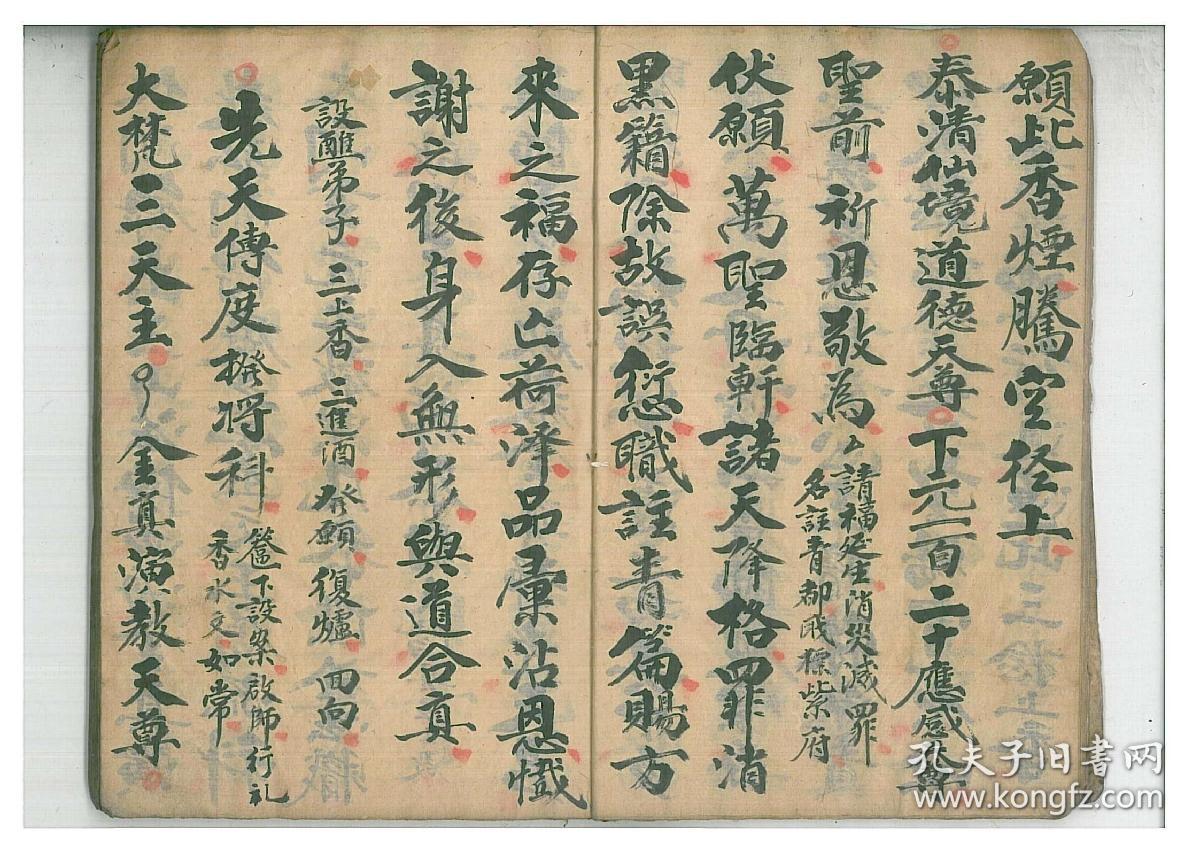 願此香煙騰空径上
泰清仙境道德天尊下元一百二十應感天尊
聖前祈恩敬為厶請福延生消災滅罪
名註青都衔标紫府
伏願萬聖臨軒諸天降格罪消
黑籍除故誤愆職註青篇賜方
來之福存亡荷泽品彙沾恩懺
謝之後身入無形與道合真
設醮弟子三上香三進酒發願復爐回向
先天傳度撥将科
簷下設案啟師行礼
香水文如常
大梵三天主
金真演教天尊
孔夫子旧书网
www.kongfz.com